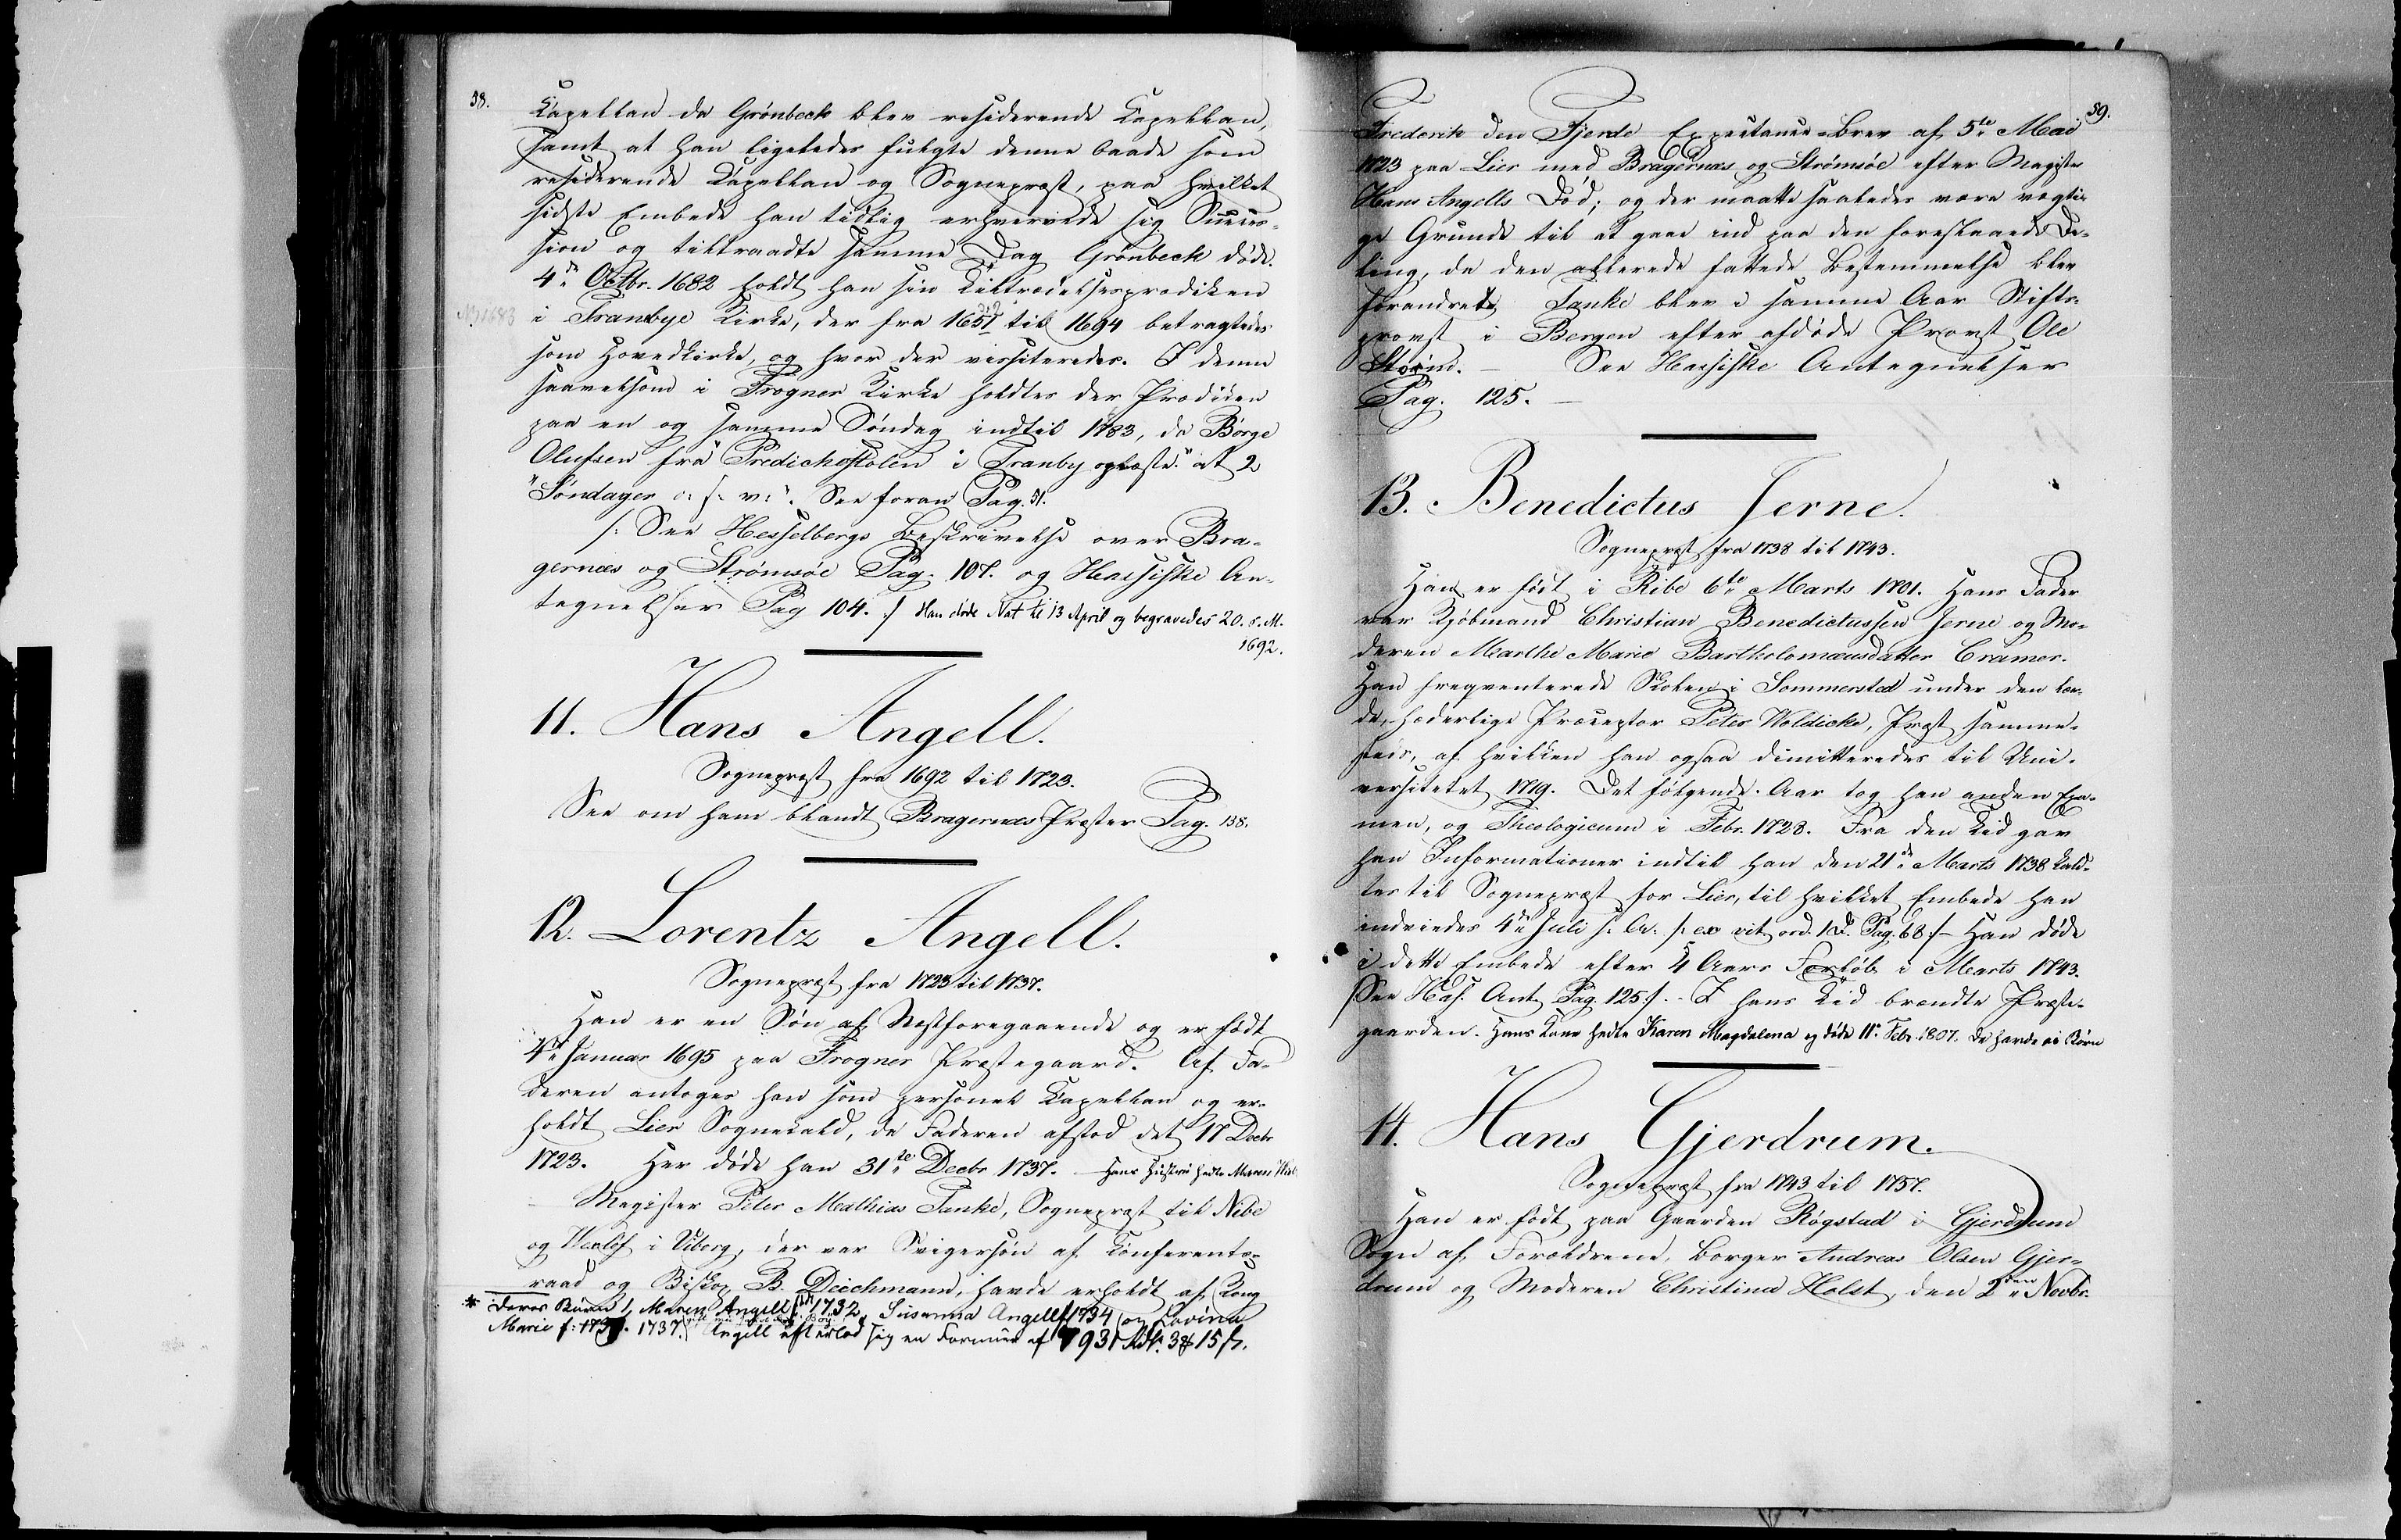 38.
Kapellan da Grønbech blev residerende Kapellan,
samt at han ligeledes fulgte denne baade som
residerende Kapellan og Sognepræst, paa hvilket
sidste Embede han tidlig erhvervede sig Succes-
sion og tiltraadte samme Dag Grønbech døde.
4de Octbr. 1682 holdt han sin Tiltrædelsesprædiken
i Tranbye Kirke, der fra 1657 til 1694 betragtedes
som Hovedkirke, og hvor der visiteredes. I denne
saavelsom i Frogner Kirke holdtes der Prædiken
paa en og samme Søndag indtil 1783, da Børge
Olufsen fra Predichestolen i Tranby oplæste: "at 2
"Søndager o: s: v:". See foran Pag. 31.
/: See Hesselbergs Beskrivelse over Bra-
gernæs og Strømsøe Pag. 107. og Heusiske An-
tegnelser Pag 104. :/ Han døde Nat til 13 April og begravedes 20. s. M.
1692.
11. Hans Angell.
Sognepræst fra 1692 til 1723.
See om ham blandt Bragernæs Præster Pag. 138.
12. Lorentz Angell.
Sognepræst fra 1723 til 1737.
Han er en Søn af Næstforegaaende og er født
4de Januar 1695 paa Frogner Præstegaard. Af Fa-
deren antoges han som personel Kapellan og er-
holdt Lier Sognekald, da Faderen afstod det 17 Decbr
1723. Her døde han 31te Decbr 1737. Hans Hustru hedte Maren
Magister Peter Mathias Tanke, Sognepræst til Nibe
og i Viborg, der var Svigersøn af Konferents-
raad og Biskop B. Deichmann, havde erholdt af Kong
* Deres Børn 1, Maren Angell født 1732, Susanna Angell f 1734 og Lovina
Marie f: 1737. Angell efterlod sig en Formue af 7931 Rdlr. 3 15 s.
39.
Frederik den Fjerde Expectance-Brev af 5te Mai
1723 paa Lier med Bragernæs og Strømsøe efter Magister
Hans Angells Død; og der maatte saaledes være vægti-
ge Grunde til at gaae ind paa den foreslaaede De-
ling, da den allerede fattede Bestemmelse blev
forandret. Tanke blev i samme Aar Stifts-
provst i Bergen efter afdøde Provst Ole
Storm. — See Heusiske Antegnelser
Pag. 125. —
13. Benedictus Jerne.
Sognepræst fra 1738 til 1743.
Han er født i Ribe 6te Marts 1701. Hans Fader
var Kjøbmand Christian Benedictussen Jerne og Mo-
deren Marthe Marie Bartholomæusdatter Cramer.
Han freqventerede Skolen i Sommersted under den lær-
de, hæderlige Præceptor Peter Woldicke, Præst samme-
steds, af hvilken han ogsaa dimitteredes til Uni-
versitetet 1719. Det følgende Aar tog han anden Exa-
men, og Theologicum i Febr. 1728. Fra den Tid gav
han Informationer indtil han den 21de Marts 1738 kald-
tes til Sognepræst for Lier, til hvilket Embede han
indviedes 4de Juli s. A. /: ex vit. ord. Pag. 68 :/ Han døde
i dette Embede efter 4 Aars Forløb i Marts 1743.
/See Has. Ant. Pag. 125 :/. – I hans Tid brændte Præste-
gaarden. Hans Kone hedte Karen Magdalena og døde 11. Febr. 1807. De havde ei Børn
14. Hans Gjerdrum.
Sognepræst fra 1743 til 1757.
Han er født paa Gaarden Rögstad i Gjerdrum
Sogn af Forældrene, Borger Andreas Olsen Gjer-
drum og Moderen Christina Holst, den 2den Novbr.